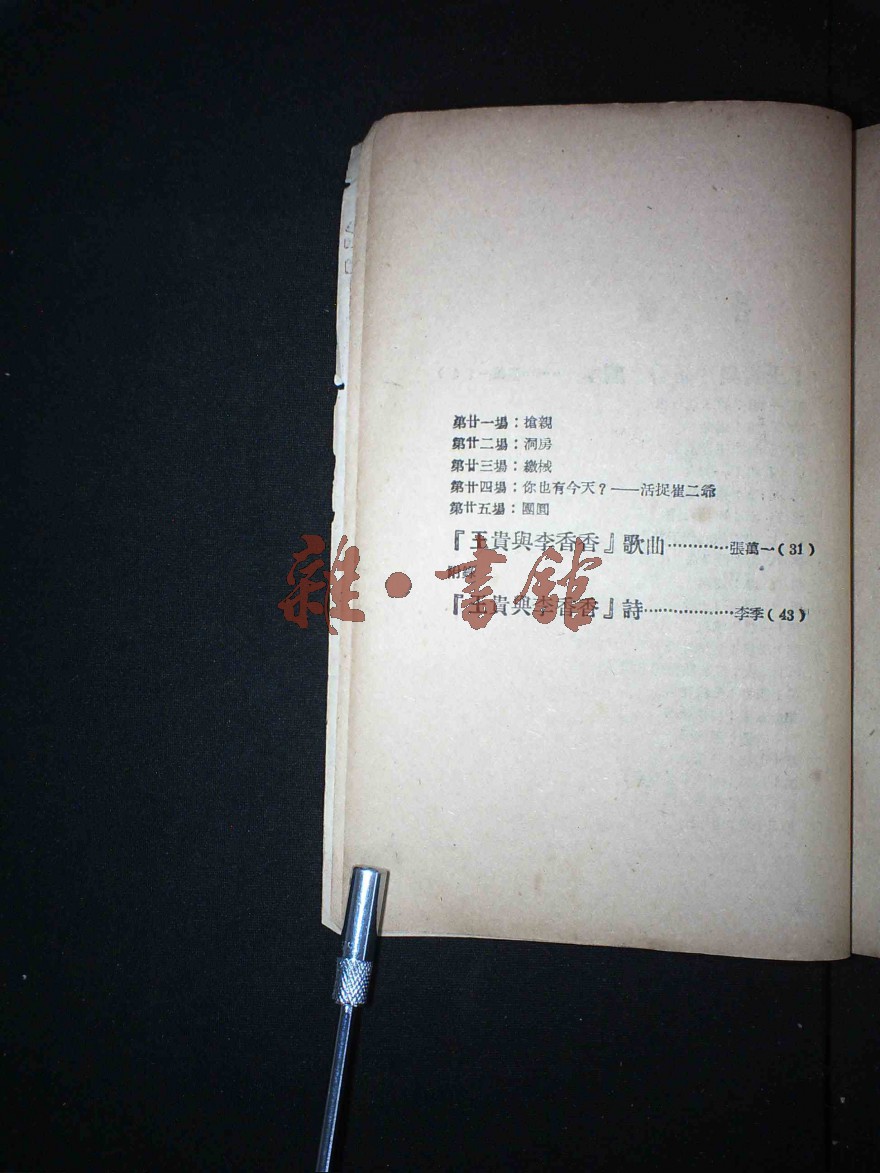 第廿一場：搶親
第廿二場：洞房
第廿三場：繳械
第廿四場：你也有今天？——活捉崔二爺
第廿五場：團圓
『王貴與李香香』歌曲…………張萬一(31)
附錄
『王貴與李香香』詩………………李季(43)
雜·書館